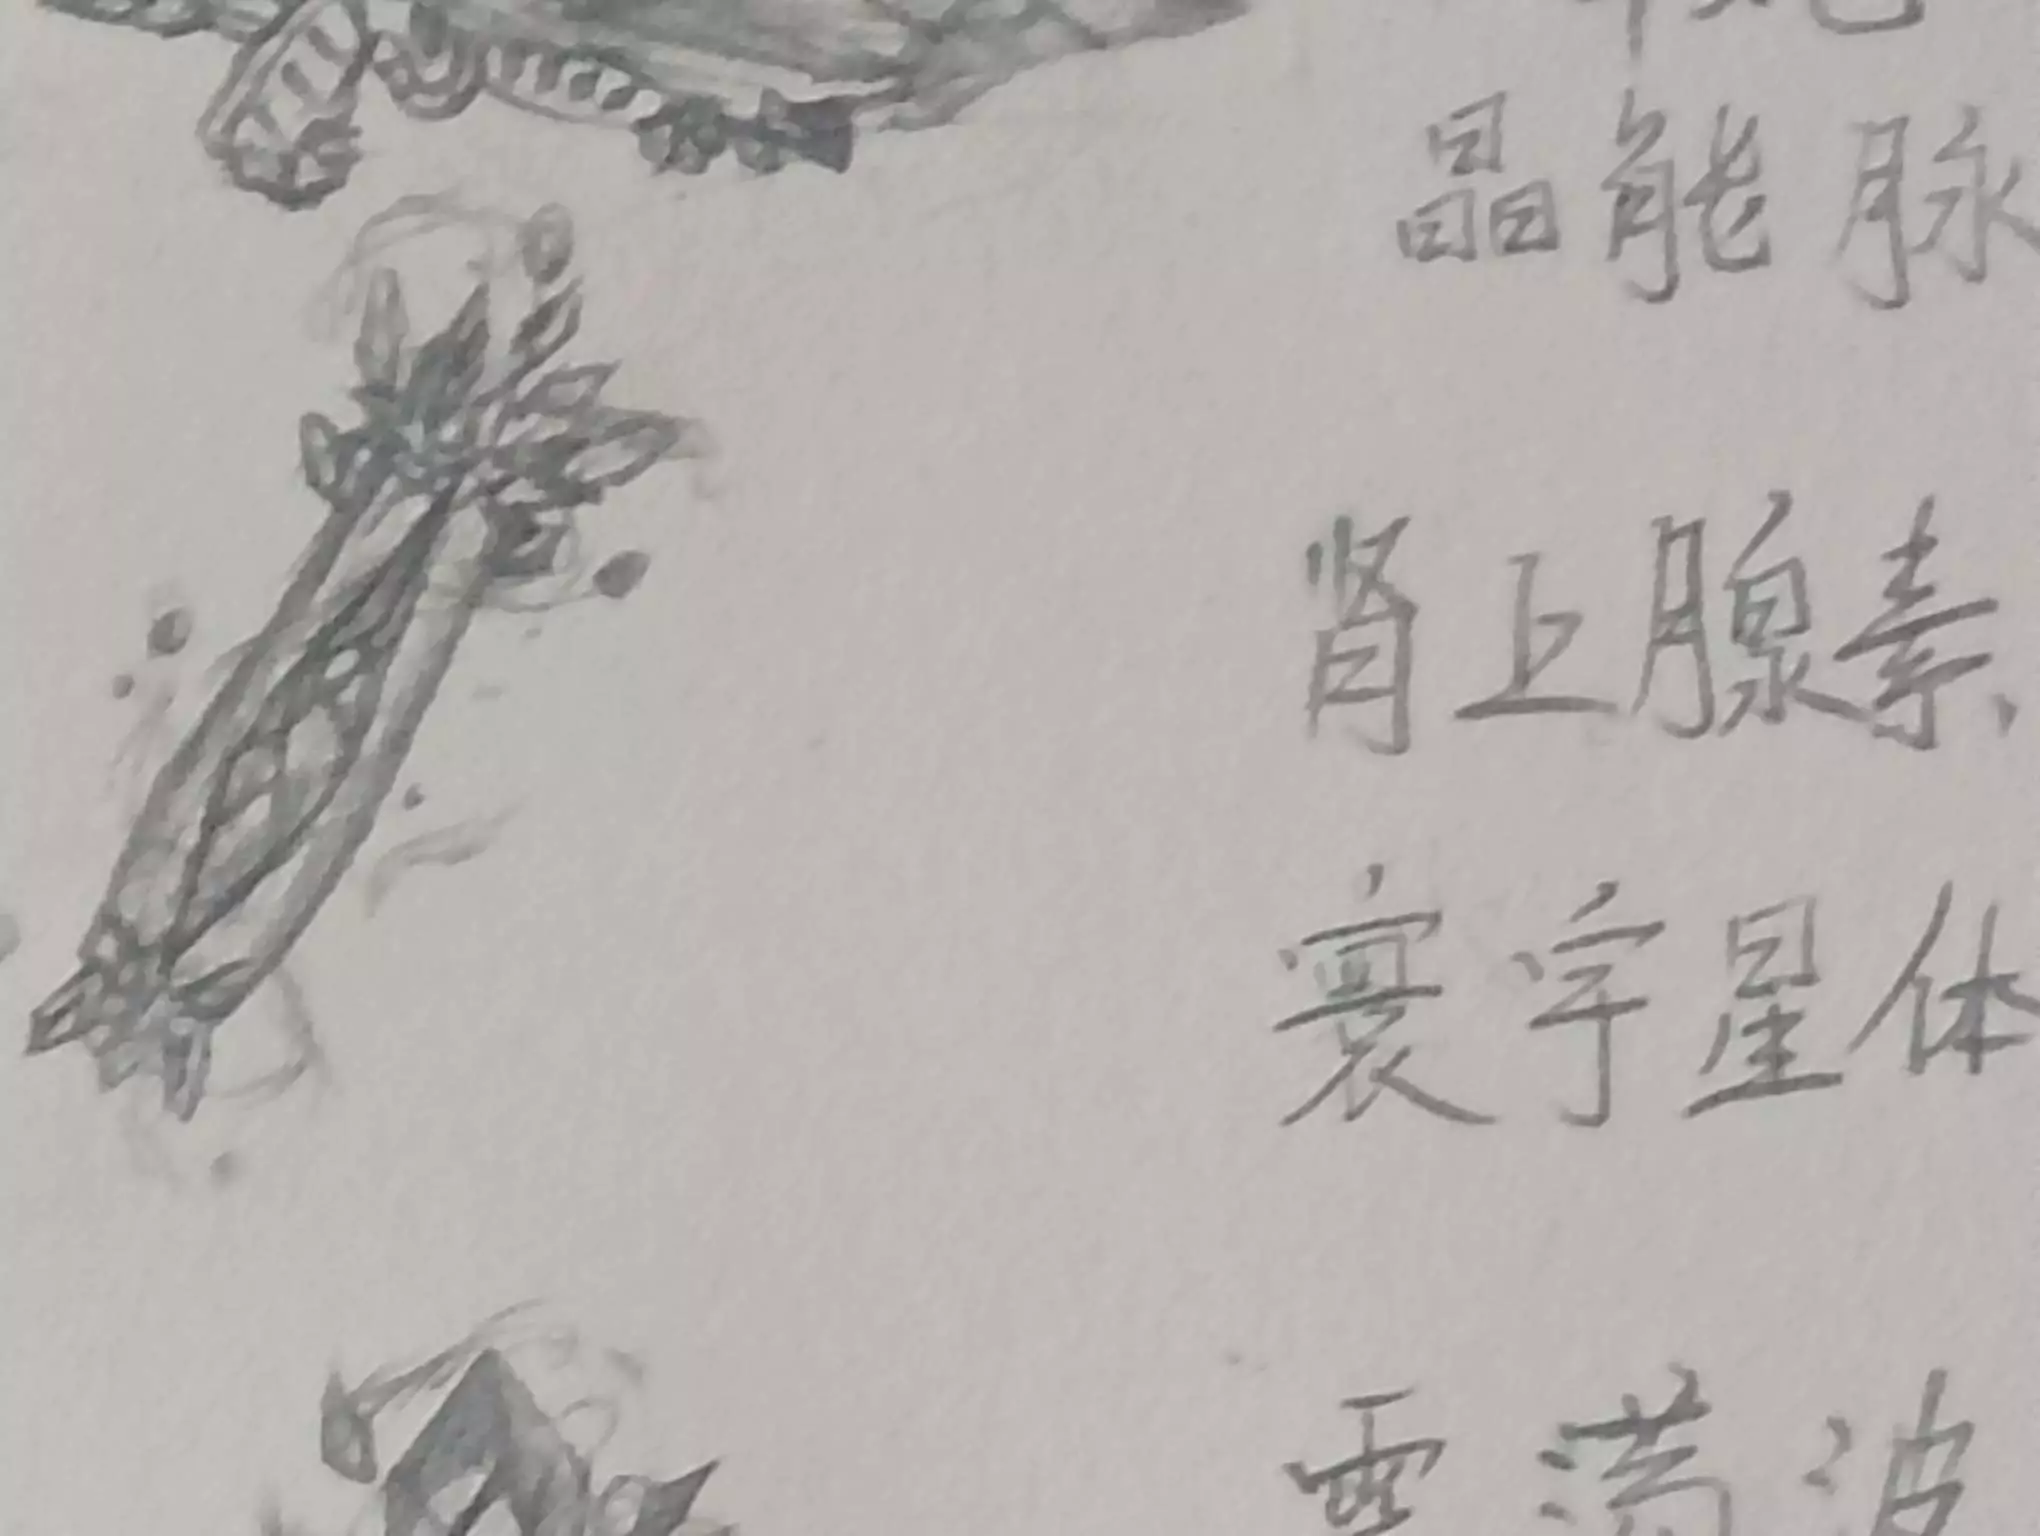 晶能脉
肾上腺素
寰宇星体
满波